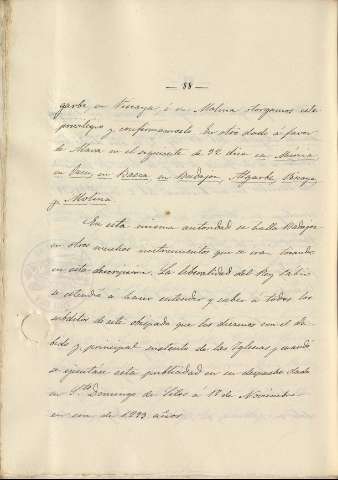 — 88 —
garbe, en Vizcaya, é en Molina otorgamos este
privilegio y confirmamoslo. En otro dado á favor
de Maria en el siguiente de 22 dice en Murcia
en Jaen, en Baeza, en Badajoz, Algarbe, Vizcaya,
y Molina.
En esta misma autoridad se halla Badajoz
en otros muchos instrumentos que se iran
en este descripcion. La liberalidad del Rey
se estendia a hacer entender y saber a todos los
subditos de este obispado que los diezmos son el de-
bido y principal sustento de las Iglesias y mandó
se ejecutase esta publicidad en su despacho dado
en Sto Domingo de Silos a 18 de Noviembre
en era de 1293 años.